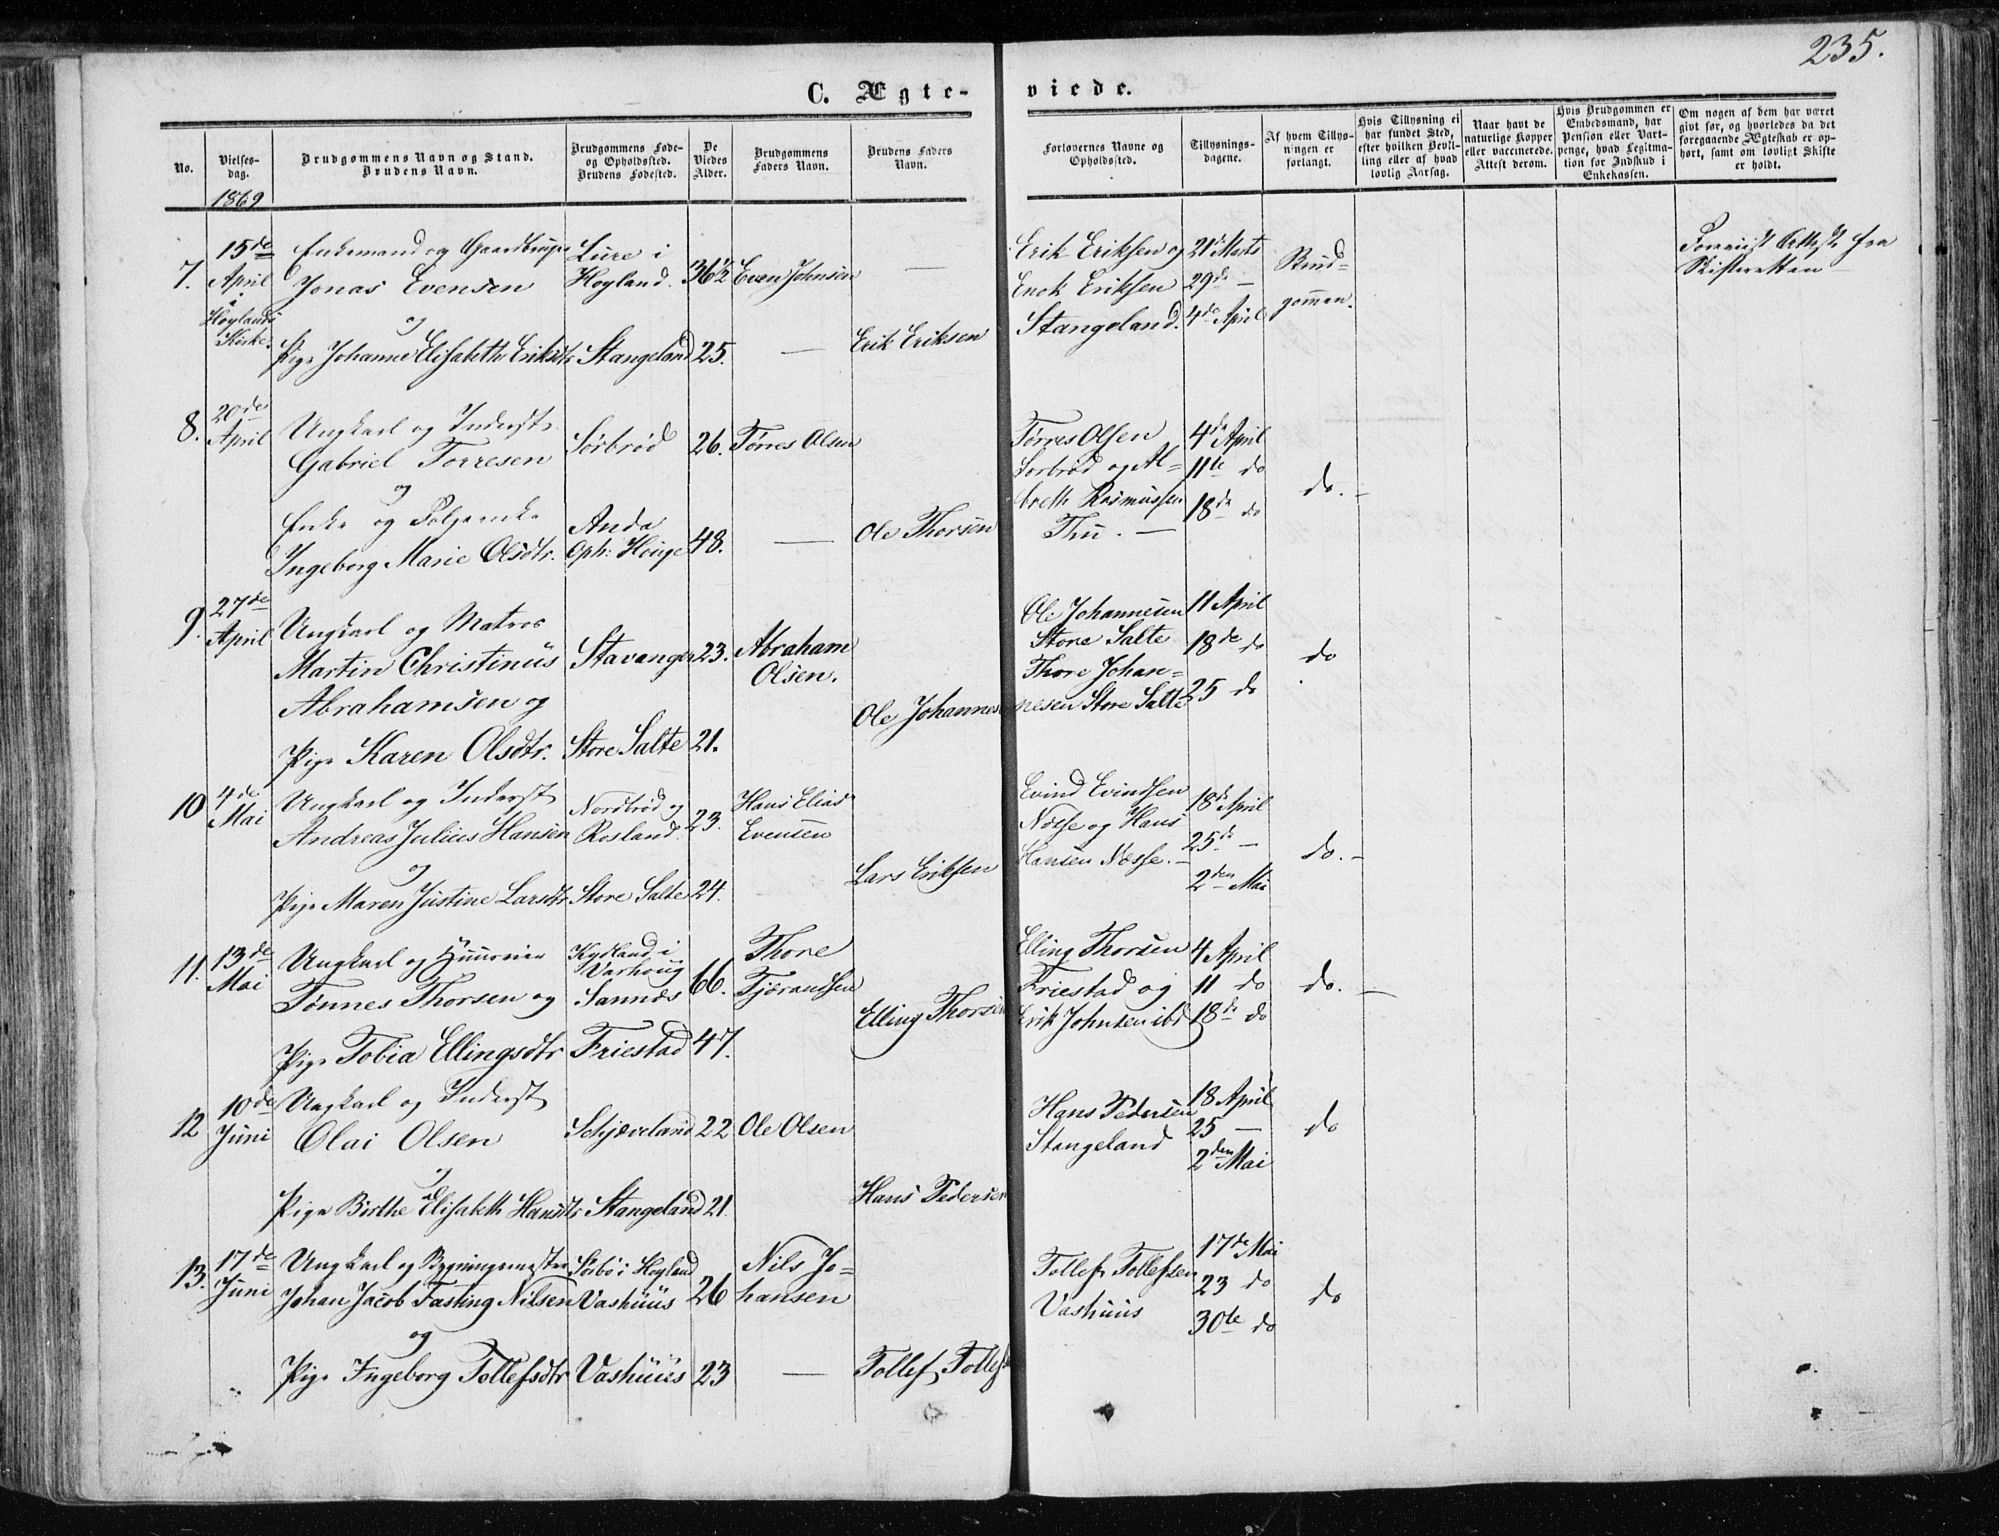 235.
C. Ægteviede.
No.
Vielsesdag.
Brudgommens Navn og Stand.
Brudens Navn.
Brudgommens Føde- og Opholdssted.
Brudens Fødested.
De Viedes Alder.
Brudgommens Faders Navn.
Brudens Faders Navn.
Forlovernes Navne og Opholdssted.
Tillysningsdagene.
Af hvem Tillysningen er forlangt.
Hvis Tillysning ei har fundet Sted, efter hvilken Bevilling eller af hvad lovlig Aarsag.
Naar havt de naturlige Kopper eller vaccinerede. Attest derom.
Hvis Brudgommen er Embedsmand, har Pension eller Vartpenge, hvad Legitmation for Indskud i Enkekassen.
Om nogen af dem har været givt før, og hvorledes da det foregaaende Ægteskab er ophørt, samt om lovligt Skifte er holdt.
1869
7. 15de April i Høylands Kirke.
Enkemand og Gaardbruger Jonas Evensen
Lure i Høyland. 36½ Even Johnsen —
og
Pige Johanne Elisabeth Eriksdtr Stangeland 25. — Erik Eriksen
Erik Eriksen og
Enok Eriksen
Stangeland.
21de Marts
29de —
4de April
Brudgommen.
Forevist Attest fra
Skifteretten
8. 20de April
Ungkarl og Inderst
Gabriel Torresen Sørbrød 26. Tørres Olsen
og
Enke og Følgeenke
Ingeborg Marie Olsdtr. Anda Oph: Houge 48. — Ole Thorsen
Tørres Olsen
Sørbrød og Albreth Rasmussen
Thu. —
4de April
11te do
18de do
do. —
9. 27de April
Ungkarl og Matros
Martin Christinus
Abrahamsen og
Stavanger 23. Abraham Olsen.
Pige Karen Olsdtr. Store Salte 21. Ole Johannesen
Ole Johannesen
Store Salte
Thore Johannesen Store Salte
11 April
18de do
25 do
do
10 4de Mai
Ungkarl og Inderst
Andreas Julius Hansen
Nordbrød og Rosland. 23. Hans Elias Evensen
og
Pige Maren Justine Larsdtr Store Salte 24. Lars Eriksen
Evind Evindsen
Næsse og Hans
Hansen Næsse. —
18de April
25de —
2den Mai
do. —
11. 13de Mai
Ungkarl og
Tønnes Thorsen og
Kydland i Varhoug
Sannæs 66. Thore Tjærandsen
Pige Tobia Ellingsdtr Friestad 47. Elling Thorsen
Elling Thorsen
Friestad og
Erik Johnsen ibd
4 April
11 do
18de do
do. —
12 10de Juni
Ungkarl og Inderst
Olai Olsen Schjæveland 22 Ole Olsen
og
Pige Birthe Elisabeth Hansdtr Stangeland 21. Hans Pedersen
Hans Pedersen
Stangeland
18 April
25 —
2den Mai
do
13. 17de Juni
Ungkarl og Bygningsmester
Johan Jacob Fasting Nilsen
Sørbø i Høyland
Vashuus 26 Nils Johansen
og
Pige Ingeborg Tollefsdtr Vashuus 23 — Tollef Tollefs
Tollef Tollefsen
Vashuus
17de Mai
23 do
30te do
do